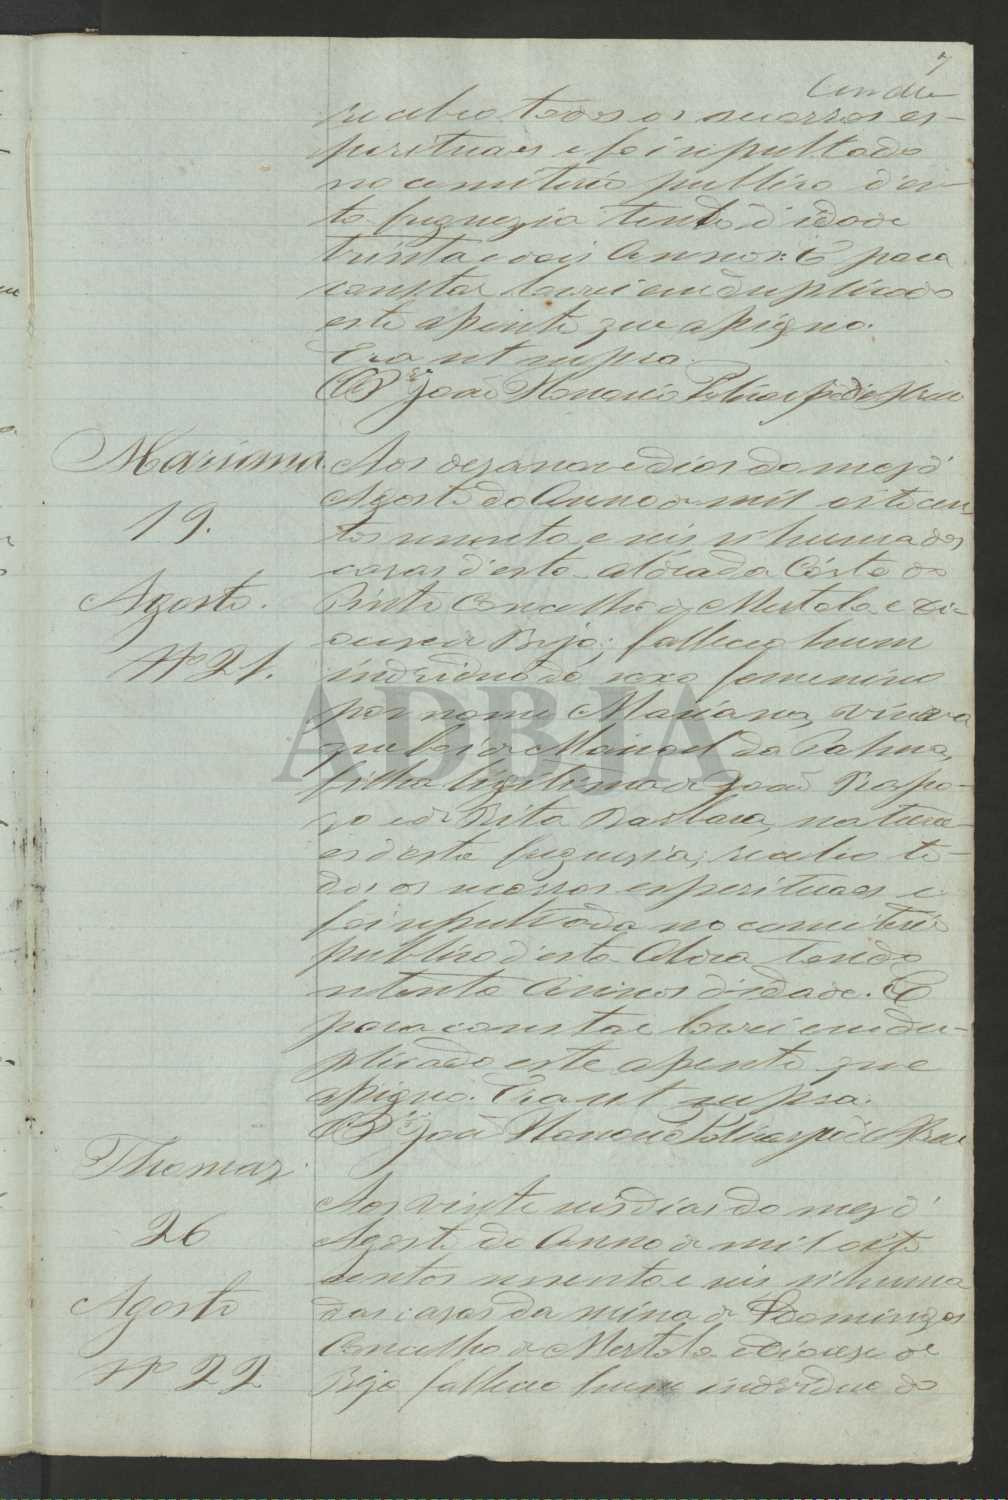 7
recebeo todos os socorros es-
perituaes e foi sepultado
no cemiterio publico d'es-
ta freguezia tendo d'idade
trinta e dois Annos: E para
constar lavrei em duplicado
este apento que apigno.
Era ut supra.
O P.or João Honorio Policarpo
Marianna
19.
Agosto.
Nº 21.
Aos dezanove dias do mez d'
Agosto do Anno de mil oitocen-
tos secenta e seis n'huma das
cazas d'esta aldêa da Côrte do
Pinto Concelho de Mertola e Di-
oceze de Beja; falleceo hum
individuo do sexo femenino
por nome Marianna, viuva
que foi de Manoel da Palma,
filha ligitima de João Rapo-
zo e de Rita Barbara, naturaes
d'esta freguezia; recebeo to-
dos os socorros esperituaes e
foi sepultada no cemiterio
publico d'esta Aldea tendo
setenta Annos d'idade. E
para constar lavrei em du-
plicado este apento que
apigno. Era ut supra.
O P.or João Honorio Policarpo
Thomaz
26
Agosto
Nº 22
Aos vinte seis dias do mez d'
Agosto do Anno de mil oito
sentos secenta e seis n'huma
das cazas da mina de S. Domingos
Concelho de Mertola e Dioceze de
Beja falleceo hum individuo do
ADBJA